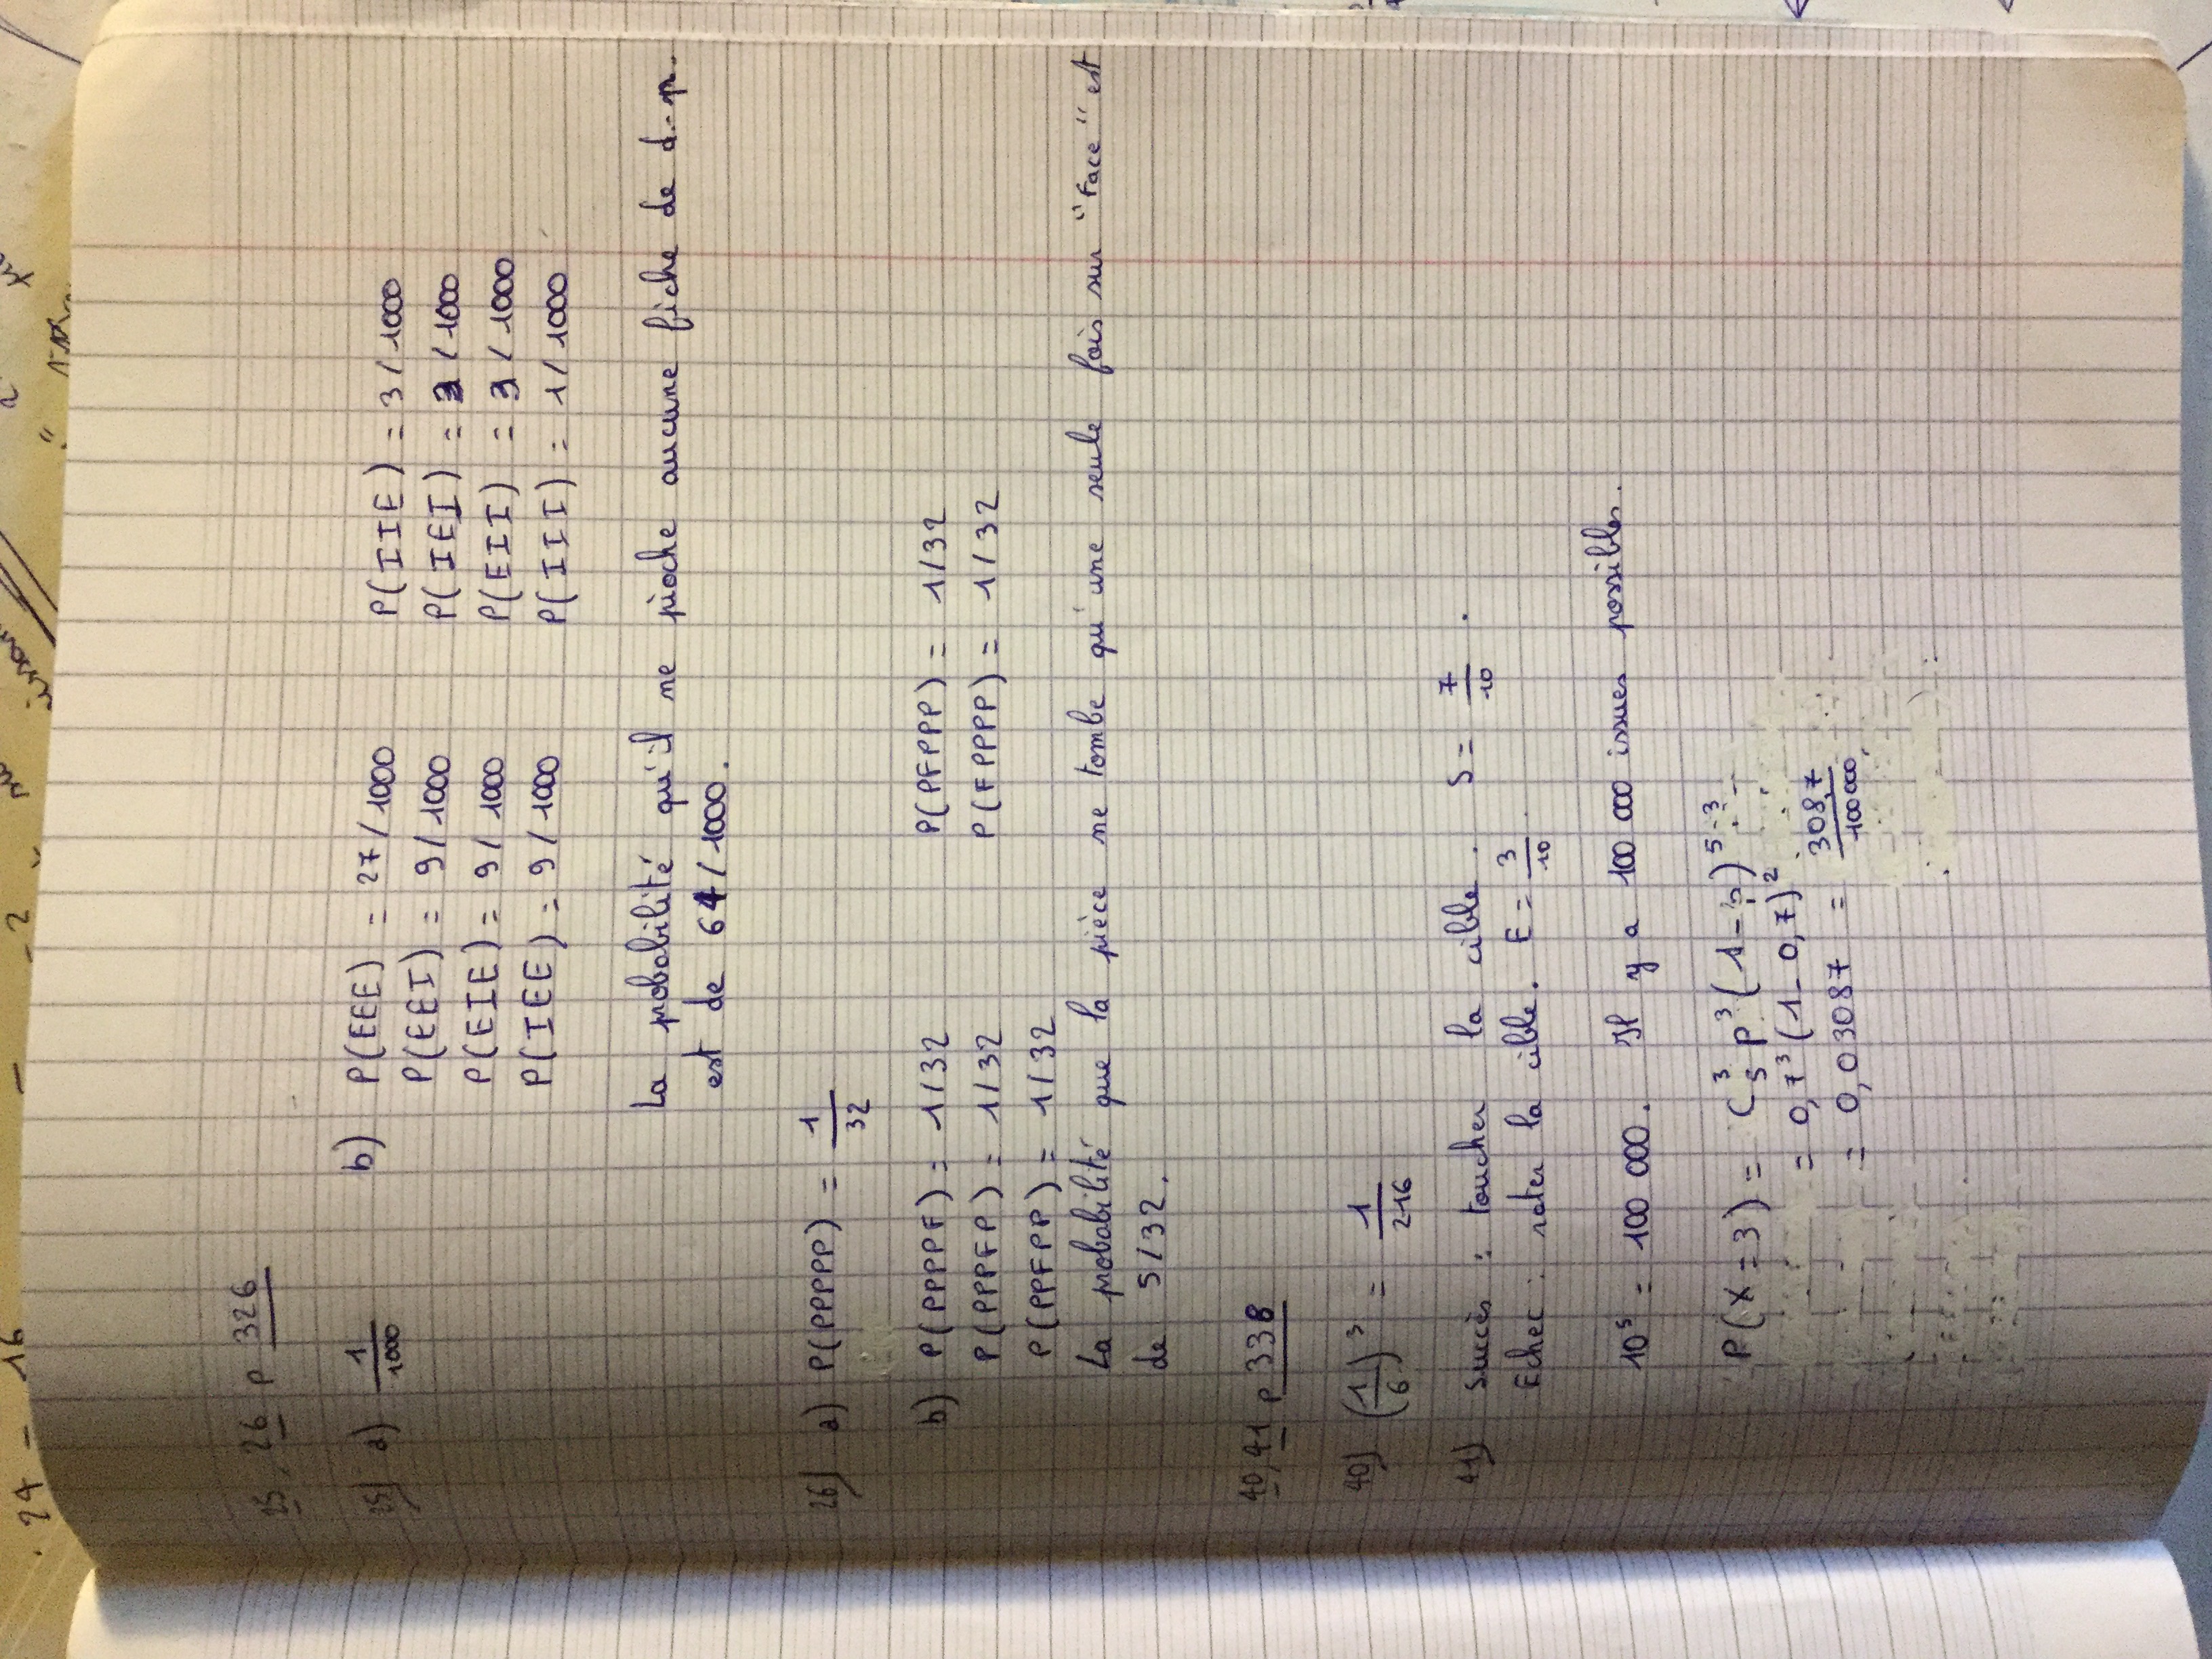 24 - 16 - - 2
25, 26 p 326
25) a) 1/1000 b) P(EEE) = 27/1000 P(IIE) = 3/1000
P(EEI) = 9/1000 P(IEI) = 3/1000
P(EIE) = 9/1000 P(EII) = 3/1000
P(IEE) = 9/1000 P(III) = 1/1000
La probabilité qu'il ne pioche aucune fiche de d.p.
est de 64/1000.
26) a) P(PPPPP) = 1/32
b) P(PPPPF) = 1/32 P(PFPPP) = 1/32
P(PPPFP) = 1/32 P(FPPPP) = 1/32
P(PPFPP) = 1/32
La probabilité que la pièce ne tombe qu'une seule fois sur "Face" est
de 5/32.
40, 41 p 338
40) (1/6)³ = 1/216
41) Succès : toucher la cible. S = 7/10.
Echec : rater la cible. E = 3/10
10⁵ = 100 000. Il y a 100 000 issues possibles.
P(X=3) = C₅³ p³ (1-p)⁵⁻³
= 0,7³ (1-0,7)²
= 0,03087 = 308,7/100000